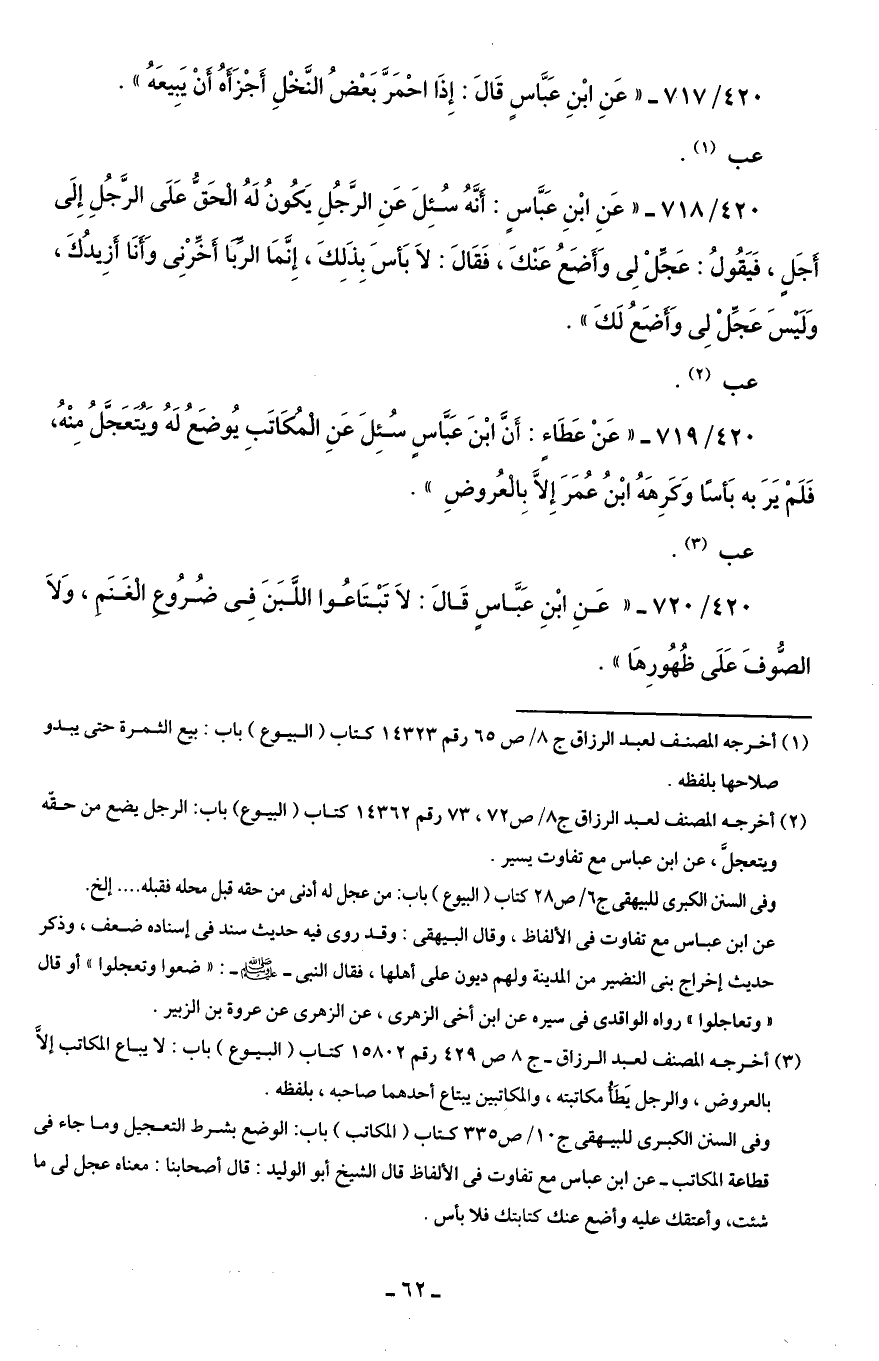 ٤٢٠/ ٧١٧ ـ « عَنِ ابْنِ عَبَّاسٍ قَالَ : إِذَا احْمَرَّ بَعْضُ النَّخْلِ أَجْزَأَهُ أَنْ يَبِيعَهُ » .
عب (١) .
٤٢٠/ ٧١٨ ـ « عَنِ ابْنِ عَبَّاسٍ : أَنَّهُ سُئِلَ عَنِ الرَّجُلِ يَكُونُ لَهُ الْحَقُّ عَلَى الرَّجُلِ إِلَى
أَجَلٍ ، فَيَقُولُ : عَجِّلْ لِى وَأَضَعُ عَنْكَ ، فَقَالَ : لاَ بَأْسَ بِذَلِكَ ، إِنَّمَا الرِّبَا أَخِّرْنِى وَأَنَا أَزِيدُكَ ،
وَلَيْسَ عَجِّلْ لِى وَأَضَعُ لَكَ » .
عب (٢) .
٤٢٠/ ٧١٩ ـ « عَنْ عَطَاءٍ : أَنَّ ابْنَ عَبَّاسٍ سُئِلَ عَنِ الْمُكَاتَبِ يُوضَعُ لَهُ وَيُتَعَجَّلُ مِنْهُ،
فَلَمْ يَرَ بِهِ بَأْسًا وَكَرِهَهُ ابْنُ عُمَرَ إِلاَّ بِالْعُرُوضِ » .
عب (٣) .
٤٢٠/ ٧٢٠ ـ « عَنِ ابْنِ عَبَّاسٍ قَالَ : لاَ تَبْتَاعُوا اللَّبَنَ فِى ضُرُوعِ الْغَنَمِ ، وَلاَ
الصُّوفَ عَلَى ظُهُورِهَا » .
(١) أخرجه المصنف لعبد الرزاق ج ٨/ ص ٦٥ رقم ١٤٣٢٣ كتاب ( البيوع ) باب : بيع الثمرة حتى يبدو
صلاحها بلفظه .
(٢) أخرجه المصنف لعبد الرزاق ج٨/ ص٧٢ ، ٧٣ رقم ١٤٣٦٢ كتاب ( البيوع) باب: الرجل يضع من حقّه
ويتعجلَّ ، عن ابن عباس مع تفاوت يسير .
وفى السنن الكبرى للبيهقى ج٦/ ص٢٨ كتاب ( البيوع ) باب: من عجل له أدنى من حقه قبل محله فقبله.... إلخ.
عن ابن عباس مع تفاوت فى الألفاظ ، وقال البيهقى : وقد روى فيه حديث سند فى إسناده ضعف ، وذكر
حديث إخراج بنى النضير من المدينة ولهم ديون على أهلها ، فقال النبى ـ ﷺ ـ : « ضعوا وتعجلوا » أو قال
« وتعاجلوا » رواه الواقدى فى سيره عن ابن أخى الزهرى ، عن الزهرى عن عروة بن الزبير .
(٣) أخرجه المصنف لعبد الرزاق ـ ج ٨ ص ٤٢٩ رقم ١٥٨٠٢ كتاب ( البيوع ) باب : لا يباع المكاتب إلاَّ
بالعروض ، والرجل يَطَأُ مكاتبته ، والمكاتبين يبتاع أحدهما صاحبه ، بلفظه .
وفى السنن الكبرى للبيهقى ج١٠/ ص٣٣٥ كتاب ( المكاتب ) باب: الوضع بشرط التعجيل وما جاء فى
قطاعة المكاتب ـ عن ابن عباس مع تفاوت فى الألفاظ قال الشيخ أبو الوليد : قال أصحابنا : معناه عجل لى ما
شئت، وأعتقك عليه وأضع عنك كتابتك فلا بأس .
ـ ٦٢ ـ